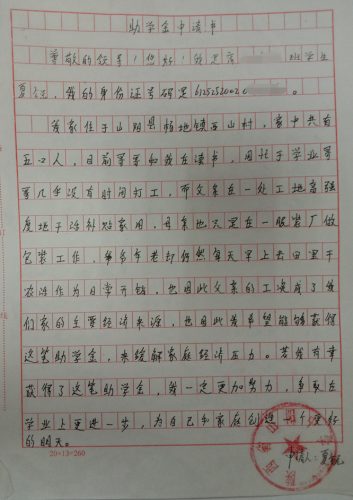 助学金申请书
尊敬的领导：您好！我是 班学生
夏 ，我的身份证号码是6125252002 。
我家住于山阳县 镇西山村，家中共有
五口人，目前哥哥和我在读书，由于学业哥
哥几乎没有时间打工，而父亲在一处工地高强
度地干活补贴家用，母亲也只是在一服装厂做
包装工作，爷爷年老却仍然每天早上去田里干
农活作为日常开销，也因此父亲的工资成了我
们家的主要经济来源，也因此我希望能够获得
这笔助学金，来缓解家庭经济压力。若我有幸
获得了这笔助学金，我一定更加努力，争取在
学业上更进一步，为自己和家庭创造一个更好
的明天。
申请人：夏
20×13=260